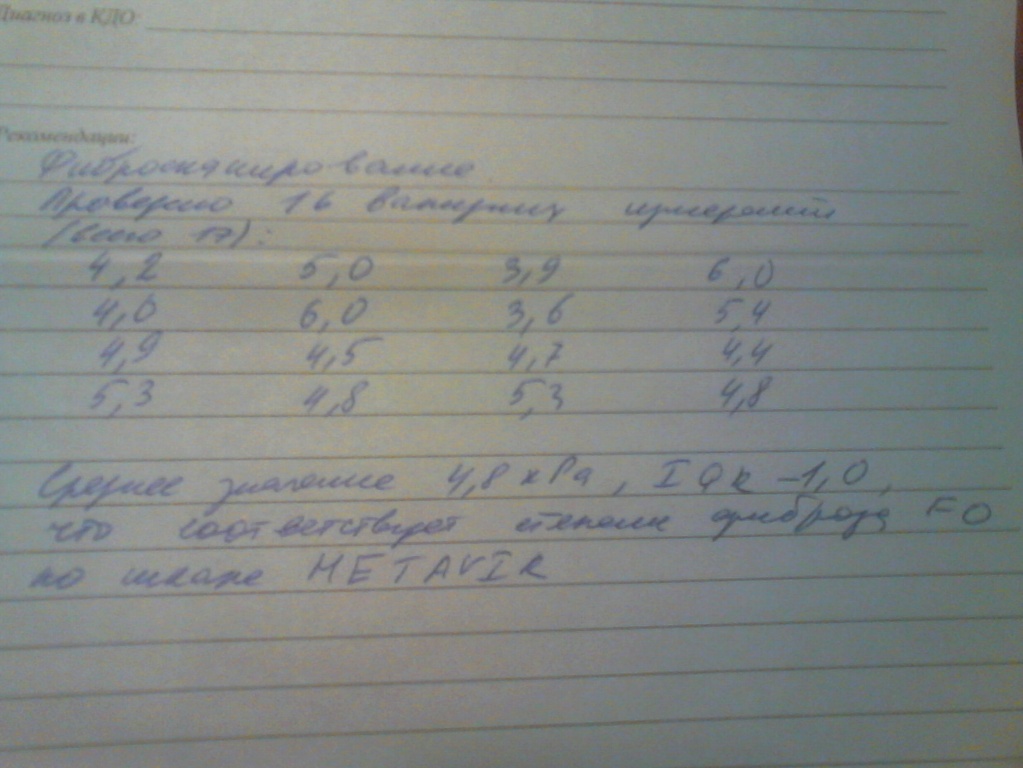 Диагноз в КДО:
Рекомендации:
Фибросканирование
Проверено 16 валидных измерений
(всего 17):
4,2 5,0 3,9 6,0
4,0 6,0 3,6 5,4
4,9 4,5 4,7 4,4
5,3 4,8 5,3 4,8
Среднее значение 4,8 kPa, IQR -1,0,
что соответствует степени фиброза F0
по шкале METAVIR